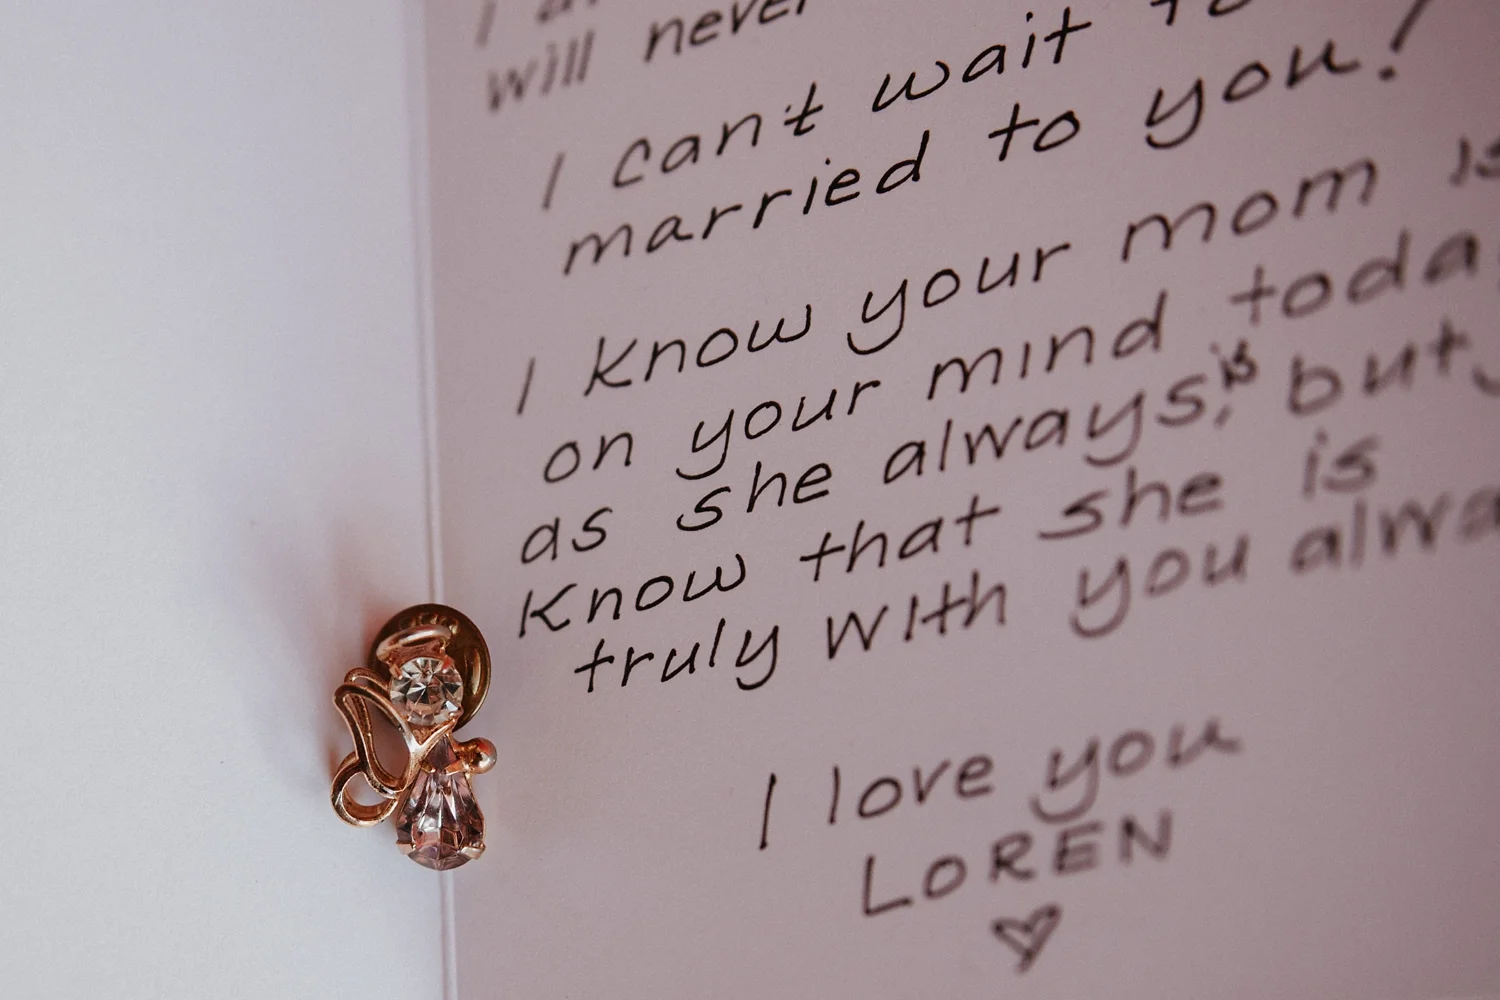 I
will never
I can't wait to
married to you!
I know your mom is
on your mind today
as she always is, but
know that she is
truly with you
I love you
LOREN